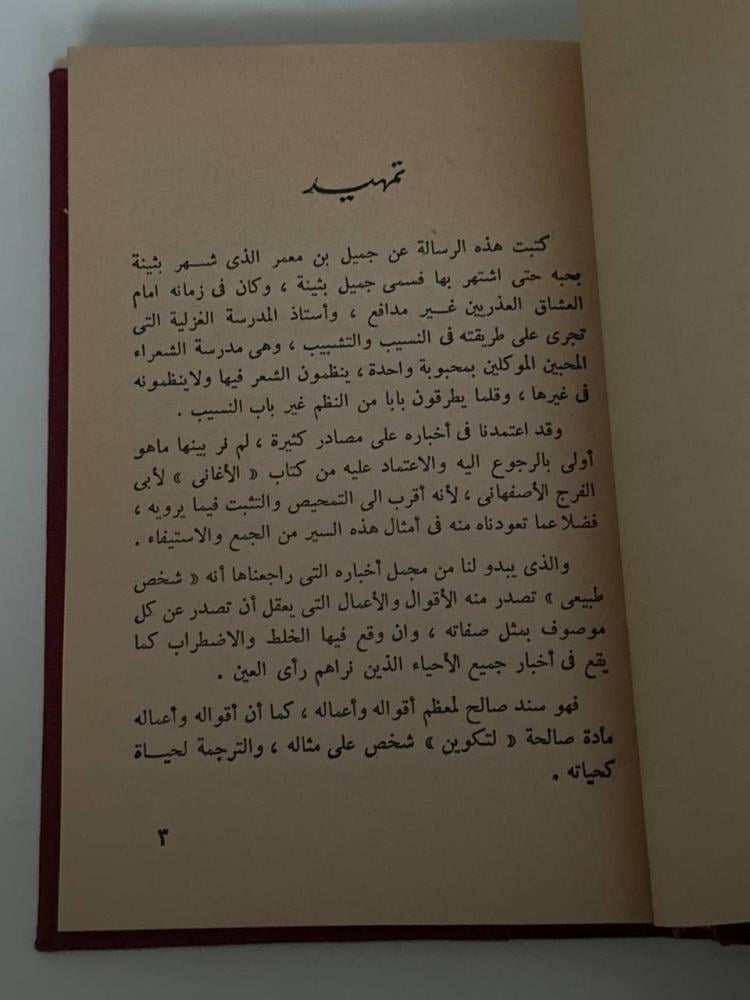 تمهيد
كتبت هذه الرسالة عن جميل بن معمر الذى شهر بثينة
بحبه حتى اشتهر بها فسمى جميل بثينة ، وكان فى زمانه امام
العشاق العذريين غير مدافع ، وأستاذ المدرسة الغزلية التى
تجرى على طريقته فى النسيب والتشبيب ، وهى مدرسة الشعراء
المحبين الموكلين بمحبوبة واحدة ، ينظمون الشعر فيها ولاينظمونه
فى غيرها ، وقلما يطرقون بابا من النظم غير باب النسيب .
وقد اعتمدنا فى أخباره على مصادر كثيرة ، لم نر بينها ماهو
أولى بالرجوع اليه والاعتماد عليه من كتاب « الأغانى » لأبى
الفرج الأصفهانى ، لأنه أقرب الى التمحيص والتثبت فيما يرويه ،
فضلا عما تعودناه منه فى أمثال هذه السير من الجمع والاستيفاء .
والذى يبدو لنا من مجمل أخباره التى راجعناها أنه « شخص
طبيعى » تصدر منه الأقوال والأعمال التى يعقل أن تصدر عن كل
موصوف بمثل صفاته ، وان وقع فيها الخلط والاضطراب كما
يقع فى أخبار جميع الأحياء الذين نراهم رأى العين .
فهو سند صالح لمعظم أقواله وأعماله ، كما أن أقواله وأعماله
مادة صالحة « لتكوين » شخص على مثاله ، والترجمة لحياة
كحياته .
٣